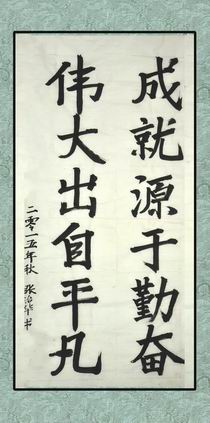 成就源于勤奋
伟大出自平凡
二零一五年秋 张治华书